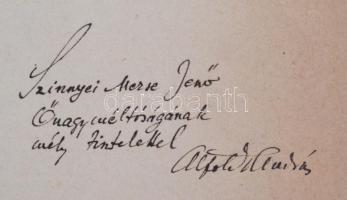 Szinnyei Merse Jenő
Őnagyméltóságának
mély tisztelettel
Alföldi András
darabanth.com